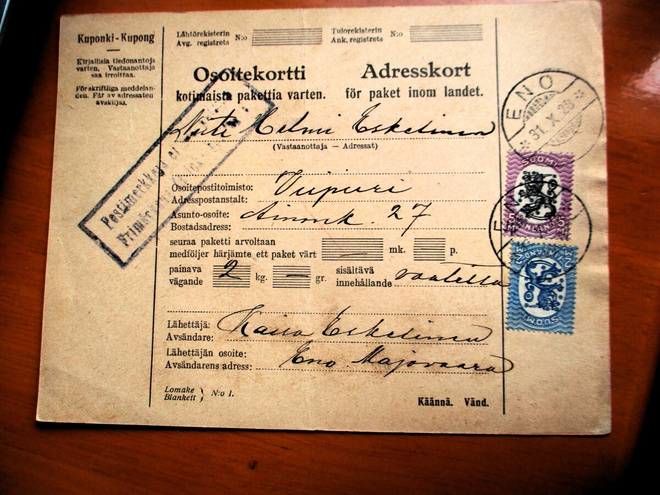 Kuponki - Kupong
Kirjallisia tiedonantoja
varten. Vastaanottaja
saa irroittaa.
För skriftliga meddelan-
den. Får av adressaten
avskiljas.
Lähtörekisterin
Avg. registrets N:o
Tulorekisterin
Ank. registrets N:o
Osoitekortti
kotimaista pakettia varten.
Adresskort
för paket inom landet.
Helmi Eskelinen
(Vastaanottaja — Adressat)
Osoitepostitoimisto:
Adresspostanstalt: Viipuri
Asunto-osoite:
Bostadsadress: 27
seuraa paketti arvoltaan
medföljer härjämte ett paket värt mk. p.
painava
vägande 2 kg. — gr.
sisältävä
innehållande vaatteita
Lähettäjä:
Avsändare: Kaisa Eskelinen
Lähettäjän osoite:
Avsändarens adress: Eno
Lomake
Blankett } N:o 1.
Käännä. Vänd.
Postimerkkejä ei
ENO
31.X.28
SUOMI
FINLAND